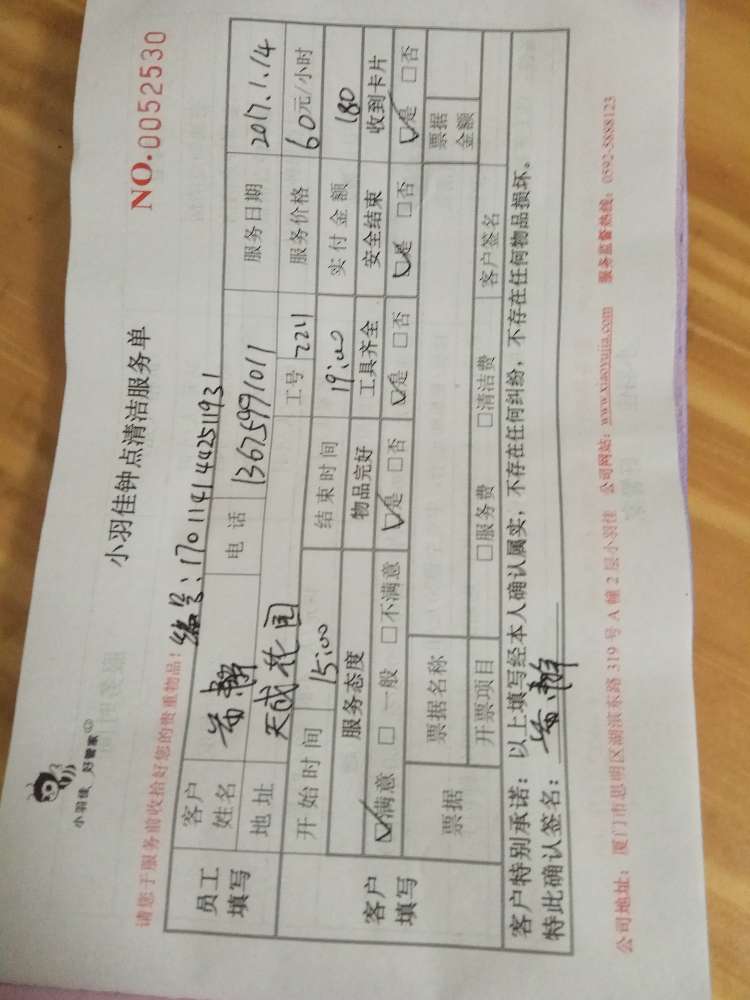 小羽佳 好管家
小羽佳钟点清洁服务单
NO.0052530
请您于服务前收拾好您的贵重物品!
编号:170114144251931
员工填写
客户姓名
电话 13675991011 服务日期 2017.1.14
地址 天成花园 工号 2211 服务价格 60元/小时
开始时间 15:00 结束时间 19:00 实付金额 180
客户填写
服务态度 物品完好 工具齐全 安全结束 收到卡片
☑满意 □一般 □不满意 ☑是 □否 ☑是 □否 ☑是 □否 ☑是 □否
票据 票据名称 票据金额
开票项目 □服务费 □清洁费 客户签名
客户特别承诺:以上填写经本人确认属实,不存在任何纠纷,不存在任何物品损坏。
特此确认签名:
公司地址:厦门市思明区湖滨东路319号A幢2层小羽佳 公司网站:www.xiaoyujia.com 服务监督热线:0592-5888123